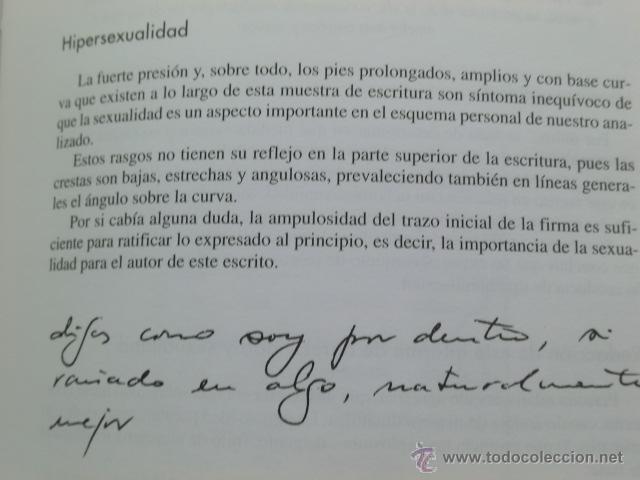 Hipersexualidad
La fuerte presión y, sobre todo, los pies prolongados, amplios y con base cur-
va que existen a lo largo de esta muestra de escritura son síntoma inequívoco de
que la sexualidad es un aspecto importante en el esquema personal de nuestro ana-
lizado.
Estos rasgos no tienen su reflejo en la parte superior de la escritura, pues las
crestas son bajas, estrechas y angulosas, prevaleciendo también en líneas genera-
les el ángulo sobre la curva.
Por si cabía alguna duda, la ampulosidad del trazo inicial de la firma es sufi-
ciente para ratificar lo expresado al principio, es decir, la importancia de la sexua-
lidad para el autor de este escrito.
digas como soy por dentro, si
variado en algo, naturalmente
mejor
www.todocoleccion.net